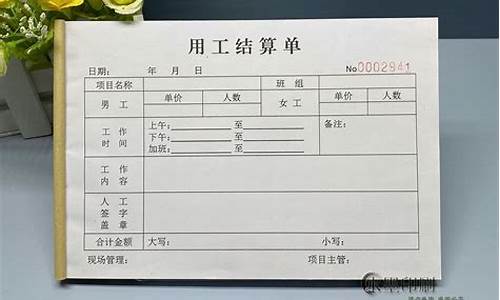 用工结算单
日期： 年 月 日 No0002941
项目名称 班 组
男 工 单价 人数 女 工 单价 人数
工 作 时 间 上午： 至 备注：
下午： 至
加班： 至
工 作 内 容
人 工 签 字 盖 章
合计金额 大写： 小写：
现场管理： 项目主管：
水墨印刷